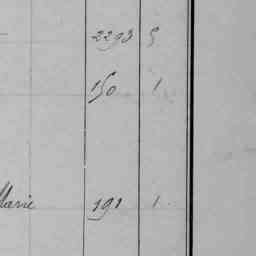 2293 5
150 1
Marie 191 1